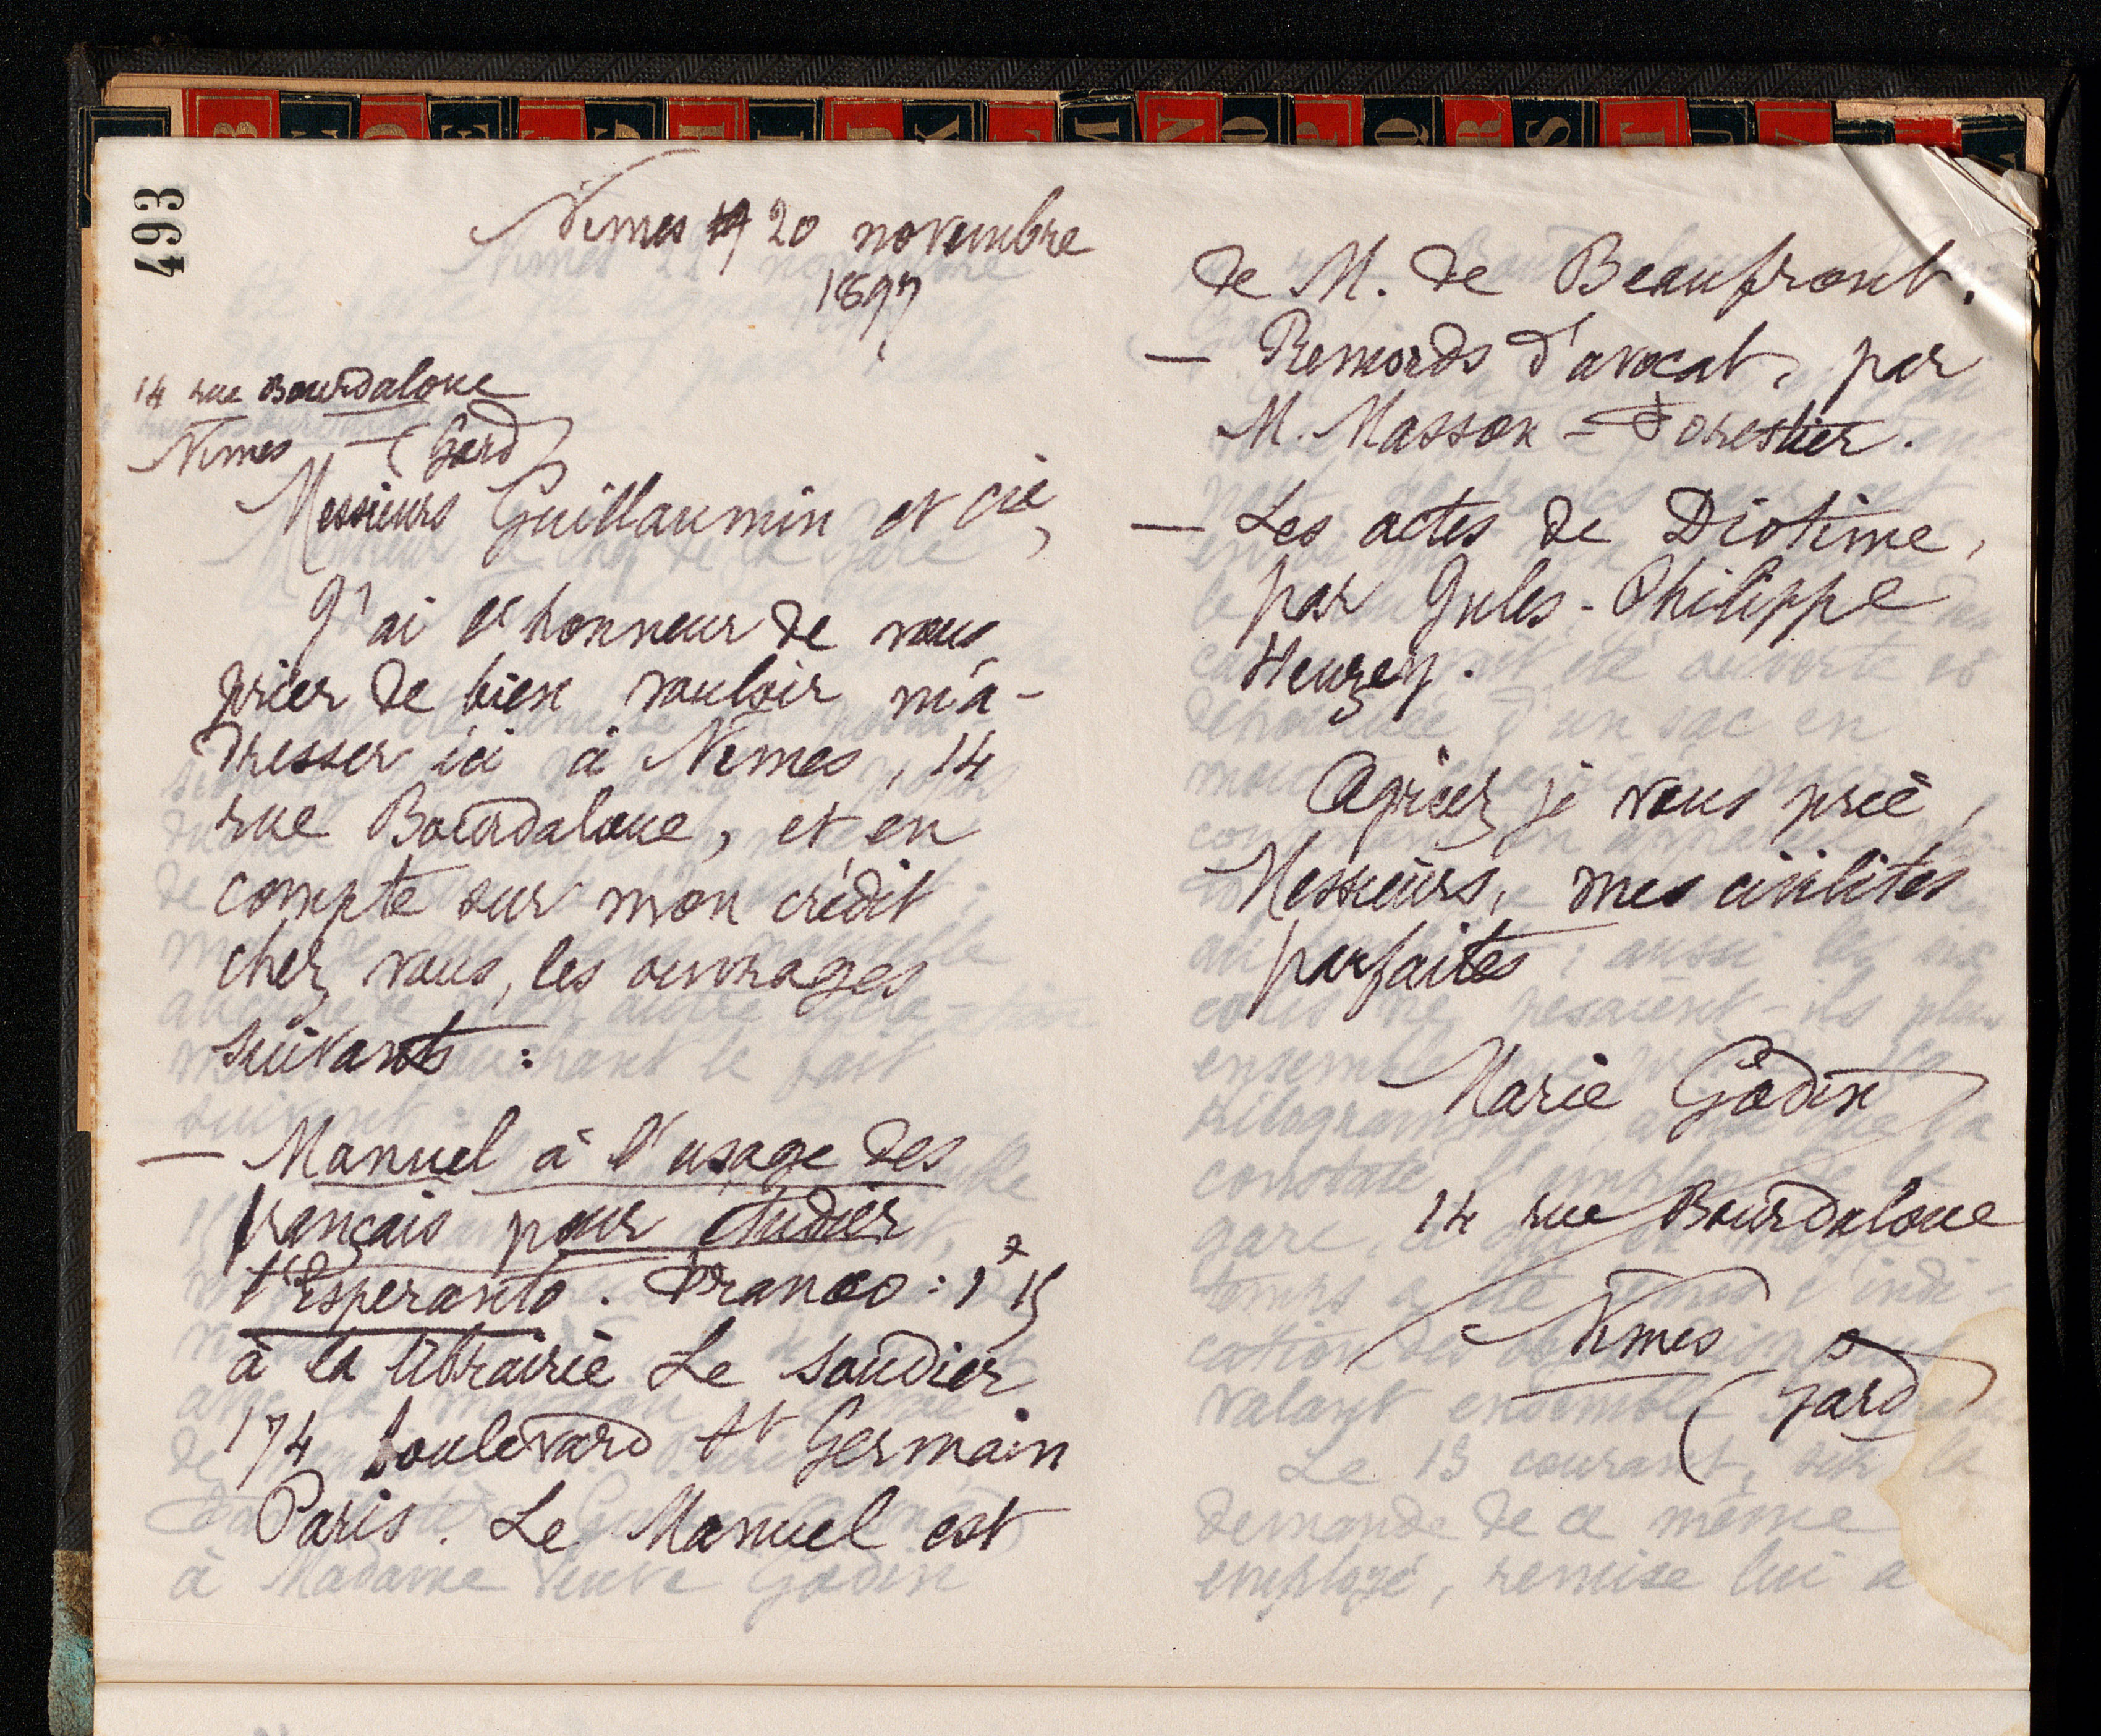 B C D E F G H I J K L M N O P Q R S T U V
493
Nîmes 20 novembre
1897
14 rue Bourdaloue
Nîmes (Gard)
Messieurs Guillaumin et Cie,
J'ai l'honneur de vous
prier de bien vouloir m'a-
dresser ici à Nîmes, 14
rue Bourdaloue, et en
compte sur mon crédit
chez vous, les ouvrages
suivants :
— Manuel à l'usage des
français pour étudier
l'Esperanto. Franco : 1f 15
à la librairie Le Soudier
174 boulevard St Germain
Paris. Le Manuel est
de M. de Beaufront.
— Remords d'avocat, par
M. Masson-Forestier.
— Les actes de Diotime,
par Jules-Philippe
Heuzey.
Agréez, je vous prie,
Messieurs, mes civilités
parfaites
Marie Godin
14 rue Bourdaloue
Nîmes
(Gard)